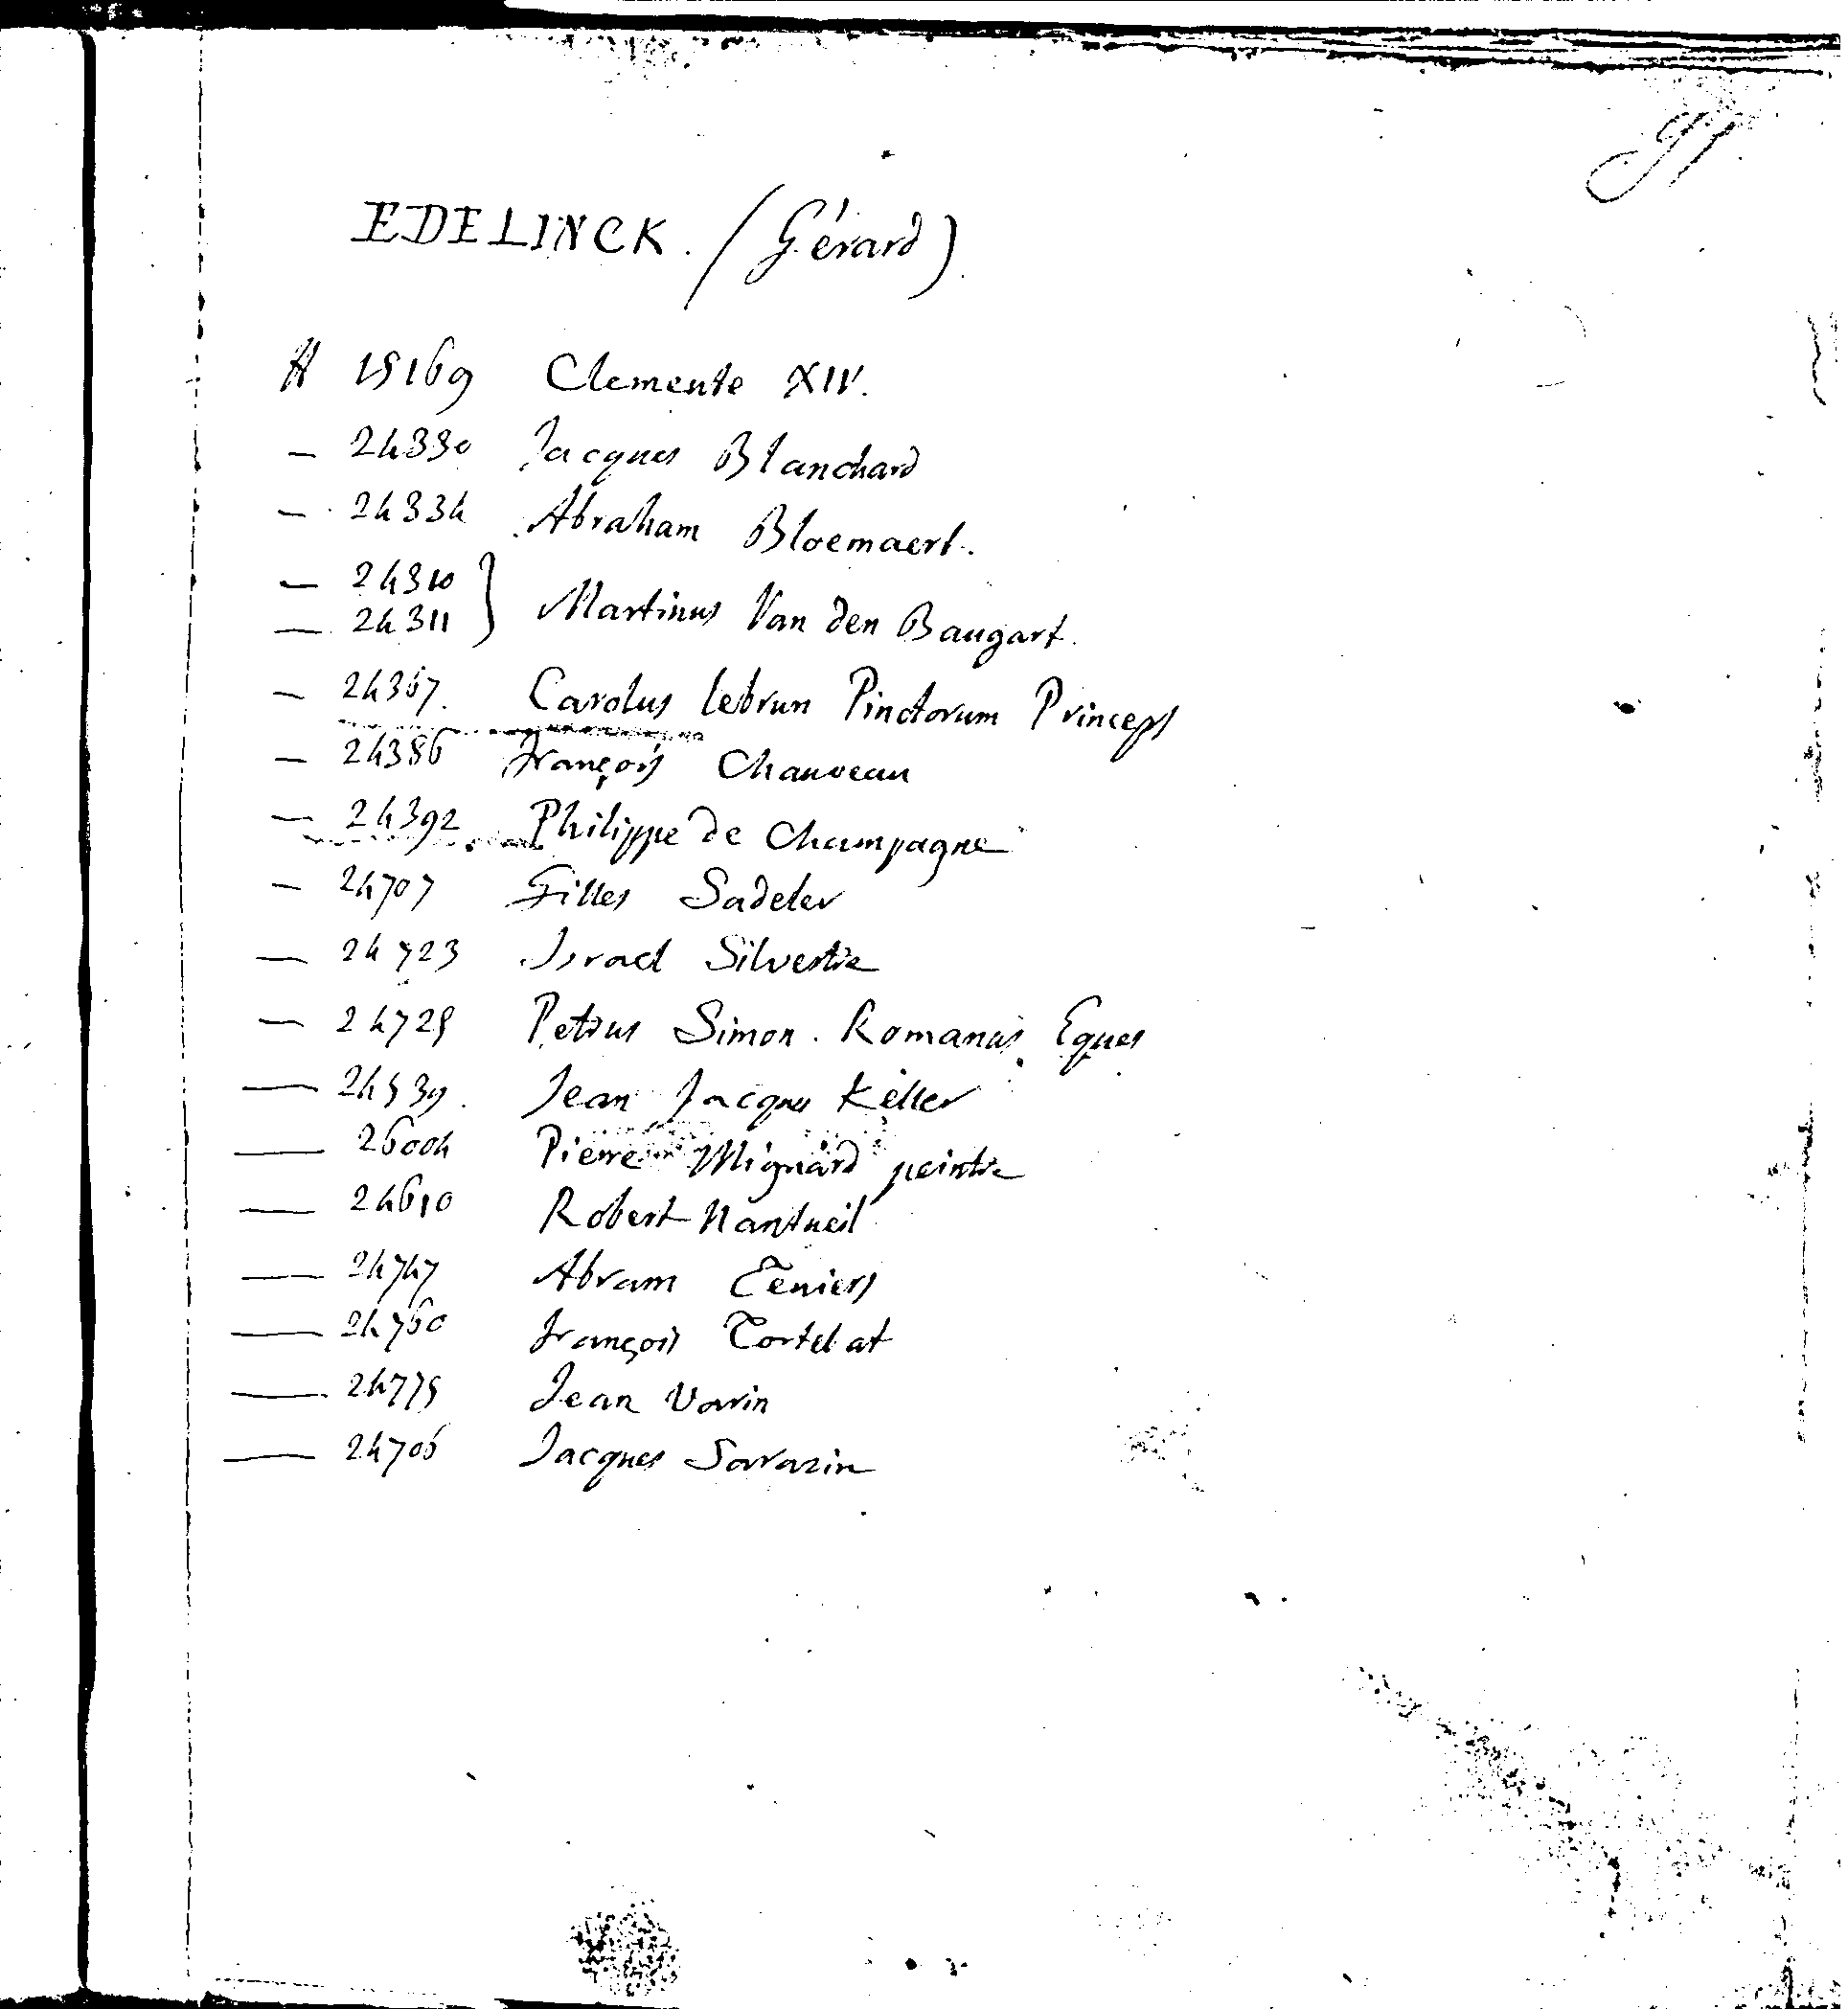 91
EDELINCK. (Gérard).
H 15169 Clemente XIV.
— 24330 Jacques Blanchard
— 24334 Abraham Bloemaert.
— 24310 }
— 24311 } Martinus Van den Baugart.
— 24367. Carolus lebrun Pinctorum Princeps
— 24386 François Chauveau
— 24392 Philippe de Champagne
— 24707 Gilles Sadeler
— 24723 Israel Silvestre
— 24725 Petrus Simon. Romanus Eques
— 24539. Jean Jacques Keller
— 26004 Pierre Mignard peintre
— 24610 Robert Nantueil
— 24747 Abram Teniers
— 24760 François Tortebat
— 24775 Jean Varin
— 24706 Jacques Sarazin